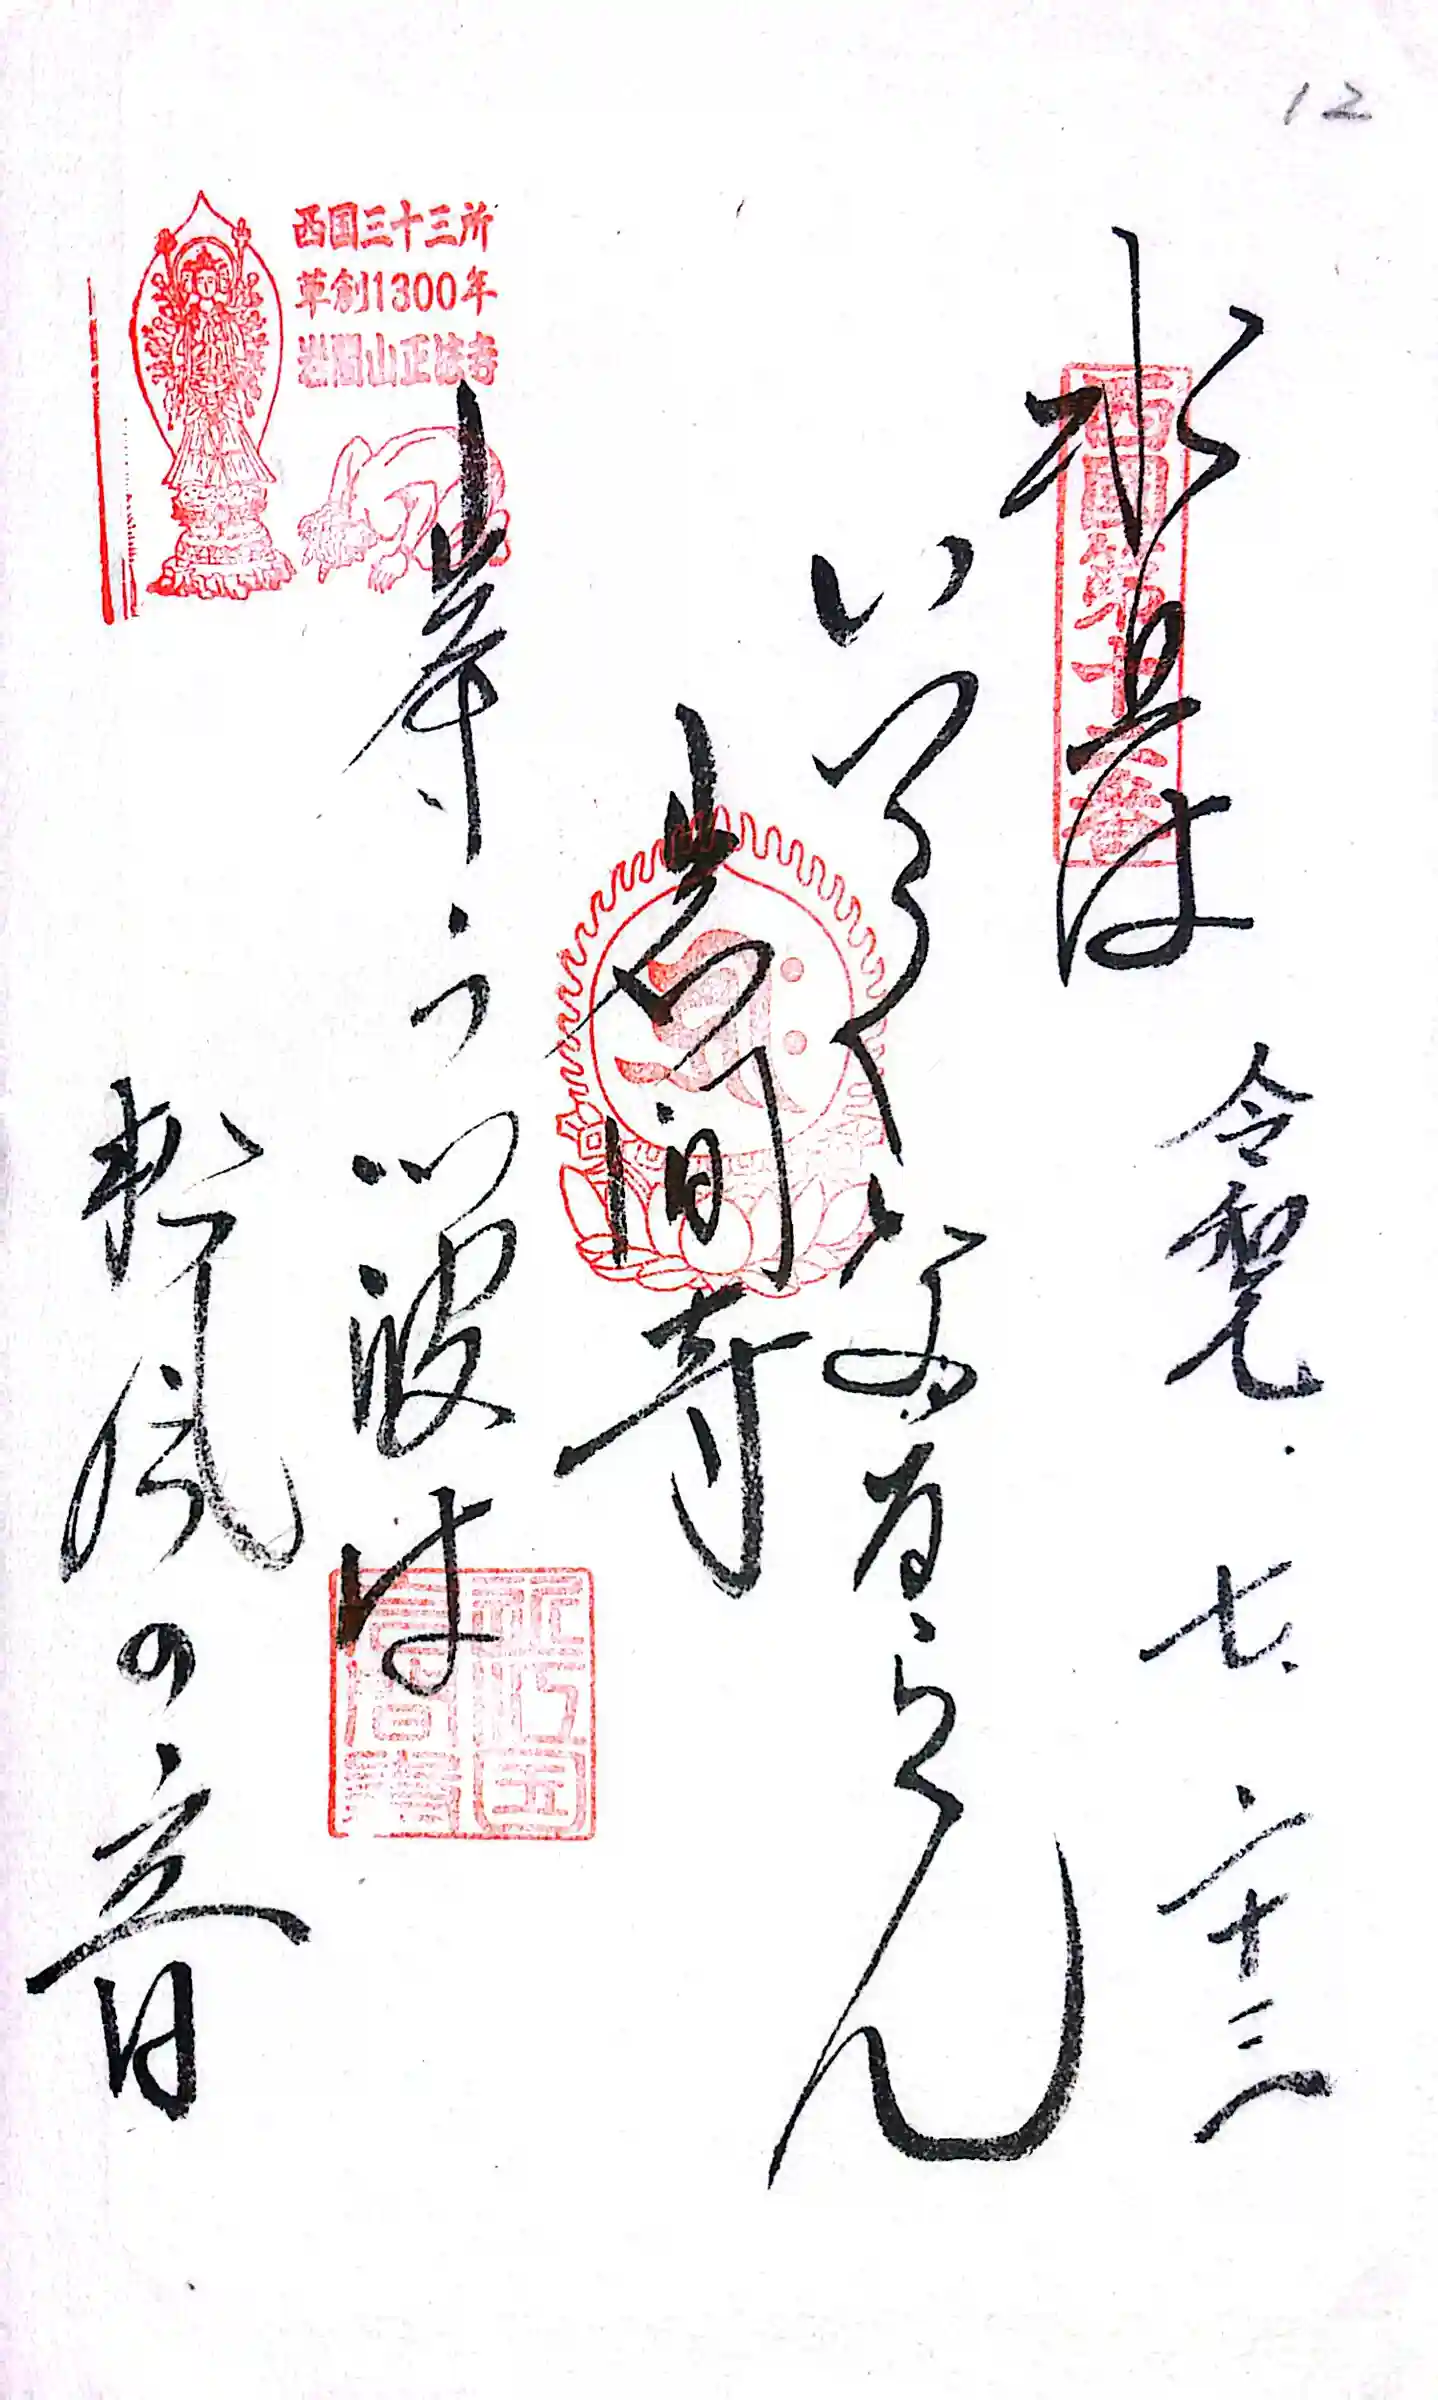 12
西国第十二番
水上は
令和元・七・二十三
いつくなるらん
岩間寺
西国三十三所
草創1300年
岩間山正法寺
岸うつ波は
松風の音